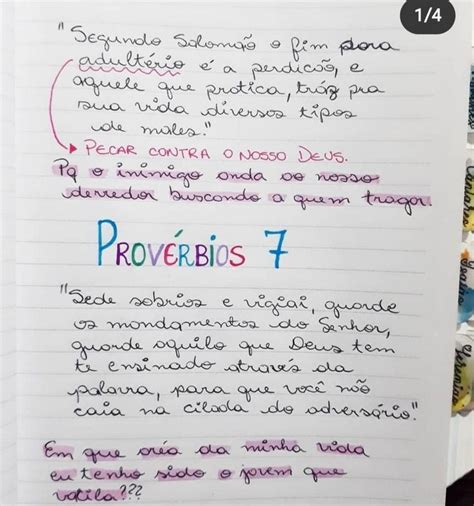 1/4
"Segundo Salomão o fim para
adultério é a perdição, e
aquele que pratica, tráz pra
sua vida diversos tipos
de males."
PECAR CONTRA O NOSSO DEUS.
Pq o inimigo anda ao nosso
derredor buscando a quem tragar.
PROVÉRBIOS 7
"Sede sobrios e vigiai, guarde
os mandamentos do Senhor,
guarde aquilo que Deus tem
te ensinado através da
palavra, para que você não
caia na cilada do adversário."
Em que área da minha vida
eu tenho sido o jovem que
vacila???